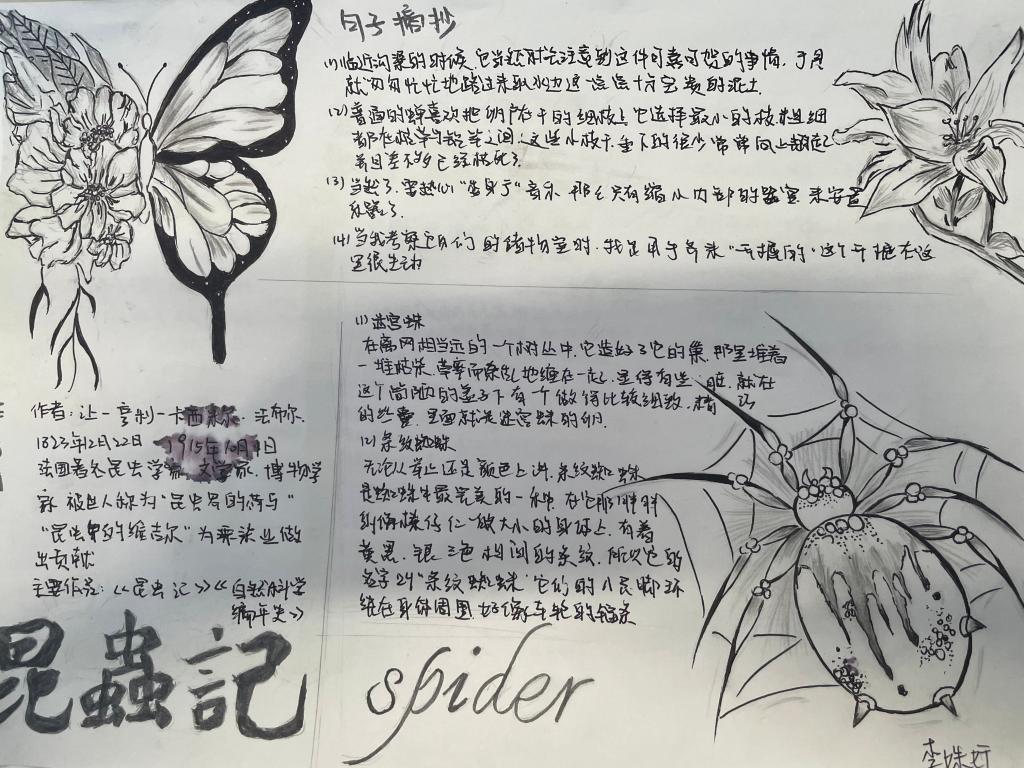 句子摘抄
(1)临近沟渠的时候,它当然时会注意到这件可喜可贺的事情,于是
就匆匆忙忙地跑过来取水边这一点点十分宝贵的泥土
(2)普通的蝉喜欢把卵产在干的细枝上它选择最小的枝粗细
都在枯草与铅笔之间,这些小枝干,垂下的很少常常向上翘起
并且差不多已经枯死了
(3)当然了,要想以"蛋身子"音乐 那么只有缩小内部的器官 来安置
乐器了.
(4)当我考察它们的储物室时,我
(1)迷宫蛛
在离网相当远的一个树丛中,它造好了它的巢,那里堆着
一堆枯柴,草率而杂乱地缠在一起,显得有些脏,就在
这个简陋的盖子下有一个做得比较细致,精巧
的丝囊,里面就是迷宫蛛的卵.
(2)条纹蜘蛛
无论从举止还是颜色上讲,条纹蜘蛛
是蜘蛛中最完美的一种,在它那胖胖
的像榛仔仁一般大小的身体上,有着
黄、黑、银三色相间的条纹,所以它的
名字叫"条纹蜘蛛"它们的八只脚环
绕在身体周围,好像车轮的辐条
作者:让-亨利-卡西米尔.法布尔.
1823年12月22日 1915年10月11日
法国著名昆虫学家,文学家,博物学
家 被世人称为"昆虫界的荷马"
"昆虫界的维吉尔"为 做
出贡献
主要作品:《昆虫记》《自然科学
编年史》
昆蟲記
spider
李姝妤